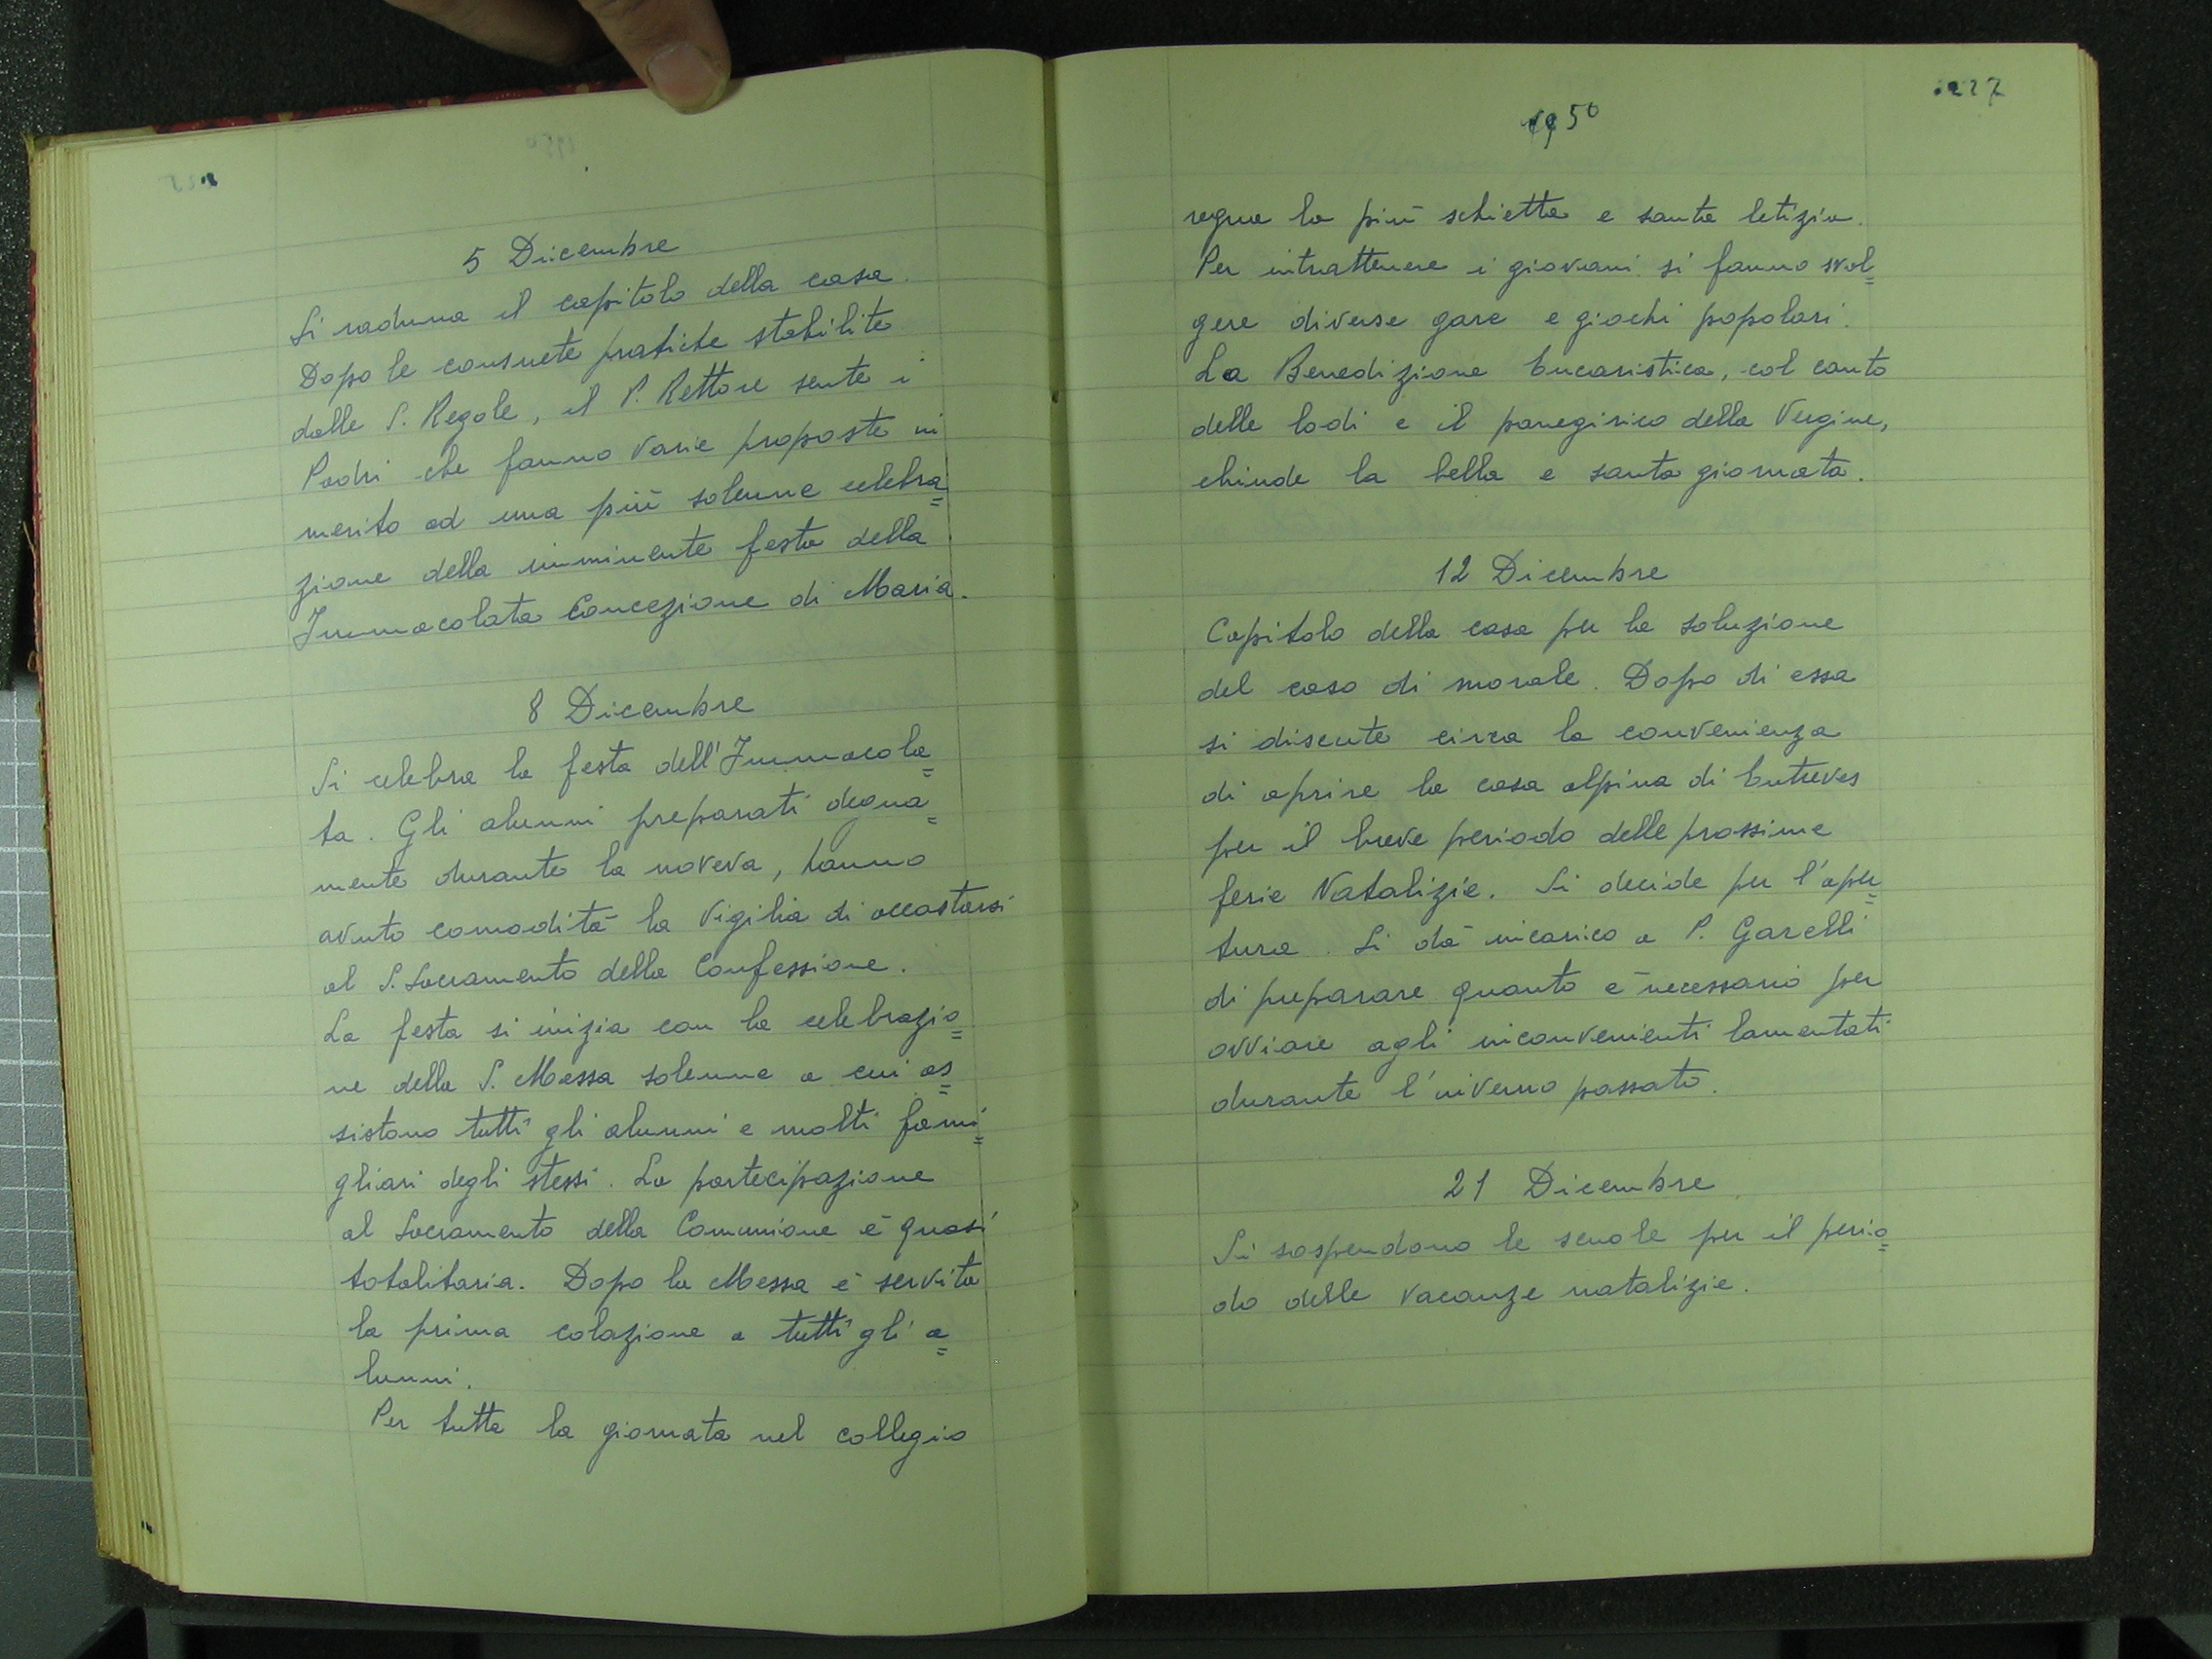 5 Dicembre
Si raduna il capitolo della casa.
Dopo le consuete pratiche stabilite
dalle S. Regole, il P. Rettore sente i
Padri che fanno varie proposte in
merito ad una più solenne celebra=
zione della imminente festa della
Immacolata Concezione di Maria.
8 Dicembre
Si celebra la festa dell'Immacola=
ta. Gli alunni preparati degna=
mente durante la novena, hanno
avuto comodità la Vigilia di accostarsi
al S. Sacramento della Confessione.
La festa si inizia con la celebrazio=
ne della S. Messa solenne a cui as=
sistono tutti gli alunni e molti fami=
gliari degli stessi. La partecipazione
al Sacramento della Comunione è quasi
totalitaria. Dopo la Messa è servita
la prima colazione a tutti gli a=
lunni.
Per tutta la giornata nel collegio
227
1950
regna la più schietta e santa letizia.
Per intrattenere i giovani si fanno svol=
gere diverse gare e giochi popolari.
La Benedizione Eucaristica, col canto
delle lodi e il panegirico della Vergine,
chiude la bella e santa giornata.
12 Dicembre
Capitolo della casa per la soluzione
del caso di morale. Dopo di essa
si discute circa la convenienza
di aprire la casa alpina di Entreves
per il breve periodo delle prossime
ferie Natalizie. Si decide per l'aper=
tura. Si dà incarico a P. Garelli
di preparare quanto è necessario per
ovviare agli inconvenienti lamentati
durante l'inverno passato.
21 Dicembre
Si sospendono le scuole per il perio=
do delle vacanze natalizie.